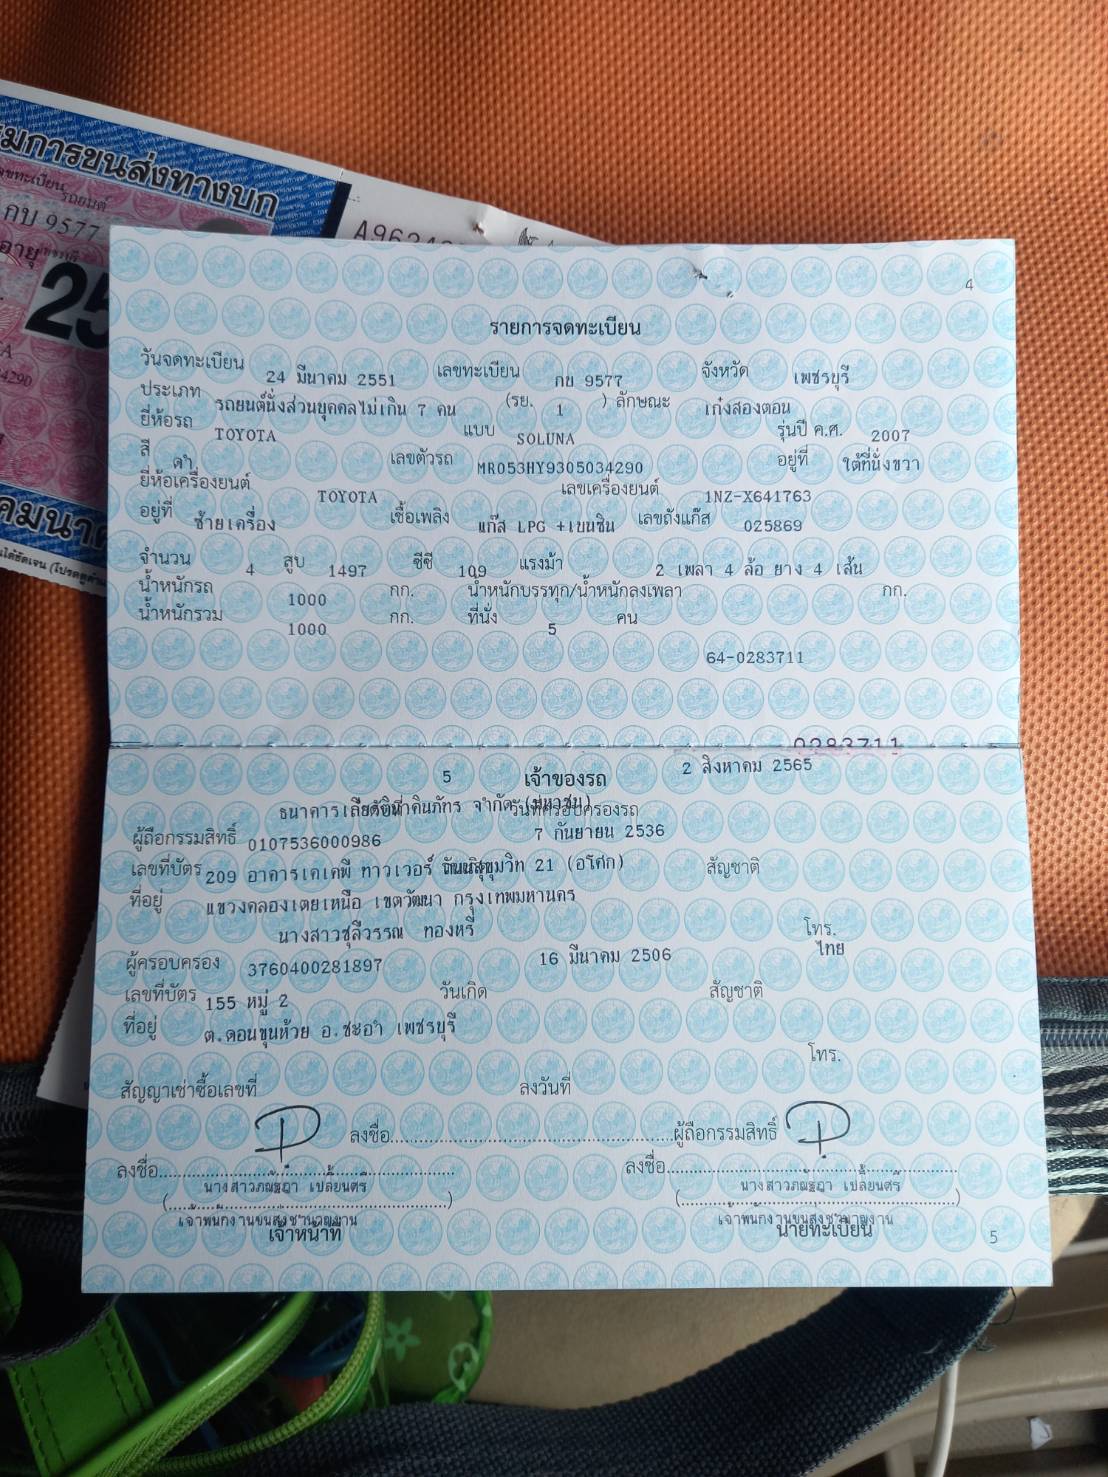 มการขนส่งทางบก
เลขทะเบียน
รถยนต์
กบ 9577
อายุ
25
4290
คมนาค
4
รายการจดทะเบียน
วันจดทะเบียน 24 มีนาคม 2551 เลขทะเบียน กบ 9577 จังหวัด เพชรบุรี
ประเภท รถยนต์นั่งส่วนบุคคลไม่เกิน 7 คน (รย. 1 ) ลักษณะ เก๋งสองตอน
ยี่ห้อรถ TOYOTA แบบ SOLUNA รุ่นปี ค.ศ. 2007
สี ดำ เลขตัวรถ MR053HY9305034290 อยู่ที่ ใต้ที่นั่งขวา
ยี่ห้อเครื่องยนต์ TOYOTA เลขเครื่องยนต์ 1NZ-X641763
อยู่ที่ ซ้ายเครื่อง เชื้อเพลิง แก๊ส LPG +เบนซิน เลขถังแก๊ส 025869
จำนวน 4 สูบ 1497 ซีซี 109 แรงม้า 2 เพลา 4 ล้อ ยาง 4 เส้น
น้ำหนักรถ 1000 กก. น้ำหนักบรรทุก/น้ำหนักลงเพลา กก.
น้ำหนักรวม 1000 กก. ที่นั่ง 5 คน
64-0283711
0283711
5 เจ้าของรถ 2 สิงหาคม 2565
ธนาคารเกียรตินาคินภัทร จำกัด (มหาชน)
วันที่ครอบครองรถ
ผู้ถือกรรมสิทธิ์ 0107536000986 7 กันยายน 2536
เลขที่บัตร 209 อาคารเคเคพี ทาวเวอร์ ถนนสุขุมวิท 21 (อโศก) สัญชาติ
ที่อยู่ แขวงคลองเตยเหนือ เขตวัฒนา กรุงเทพมหานคร
นางสาวชุลีวรรณ ทองหรี่ โทร.
ผู้ครอบครอง 3760400281897 16 มีนาคม 2506 ไทย
เลขที่บัตร 155 หมู่ 2 วันเกิด สัญชาติ
ที่อยู่ ต.ดอนขุนห้วย อ.ชะอำ เพชรบุรี
โทร.
สัญญาเช่าซื้อเลขที่ ลงวันที่
ลงชื่อ ผู้ถือกรรมสิทธิ์
ลงชื่อ ลงชื่อ
นางสาวภณัฐฎา เปลี้ยนศรี นางสาวภณัฐฎา เปลี้ยนศรี
เจ้าพนักงานขนส่งชำนาญงาน เจ้าพนักงานขนส่งชำนาญงาน
เจ้าหน้าที่ นายทะเบียน
5